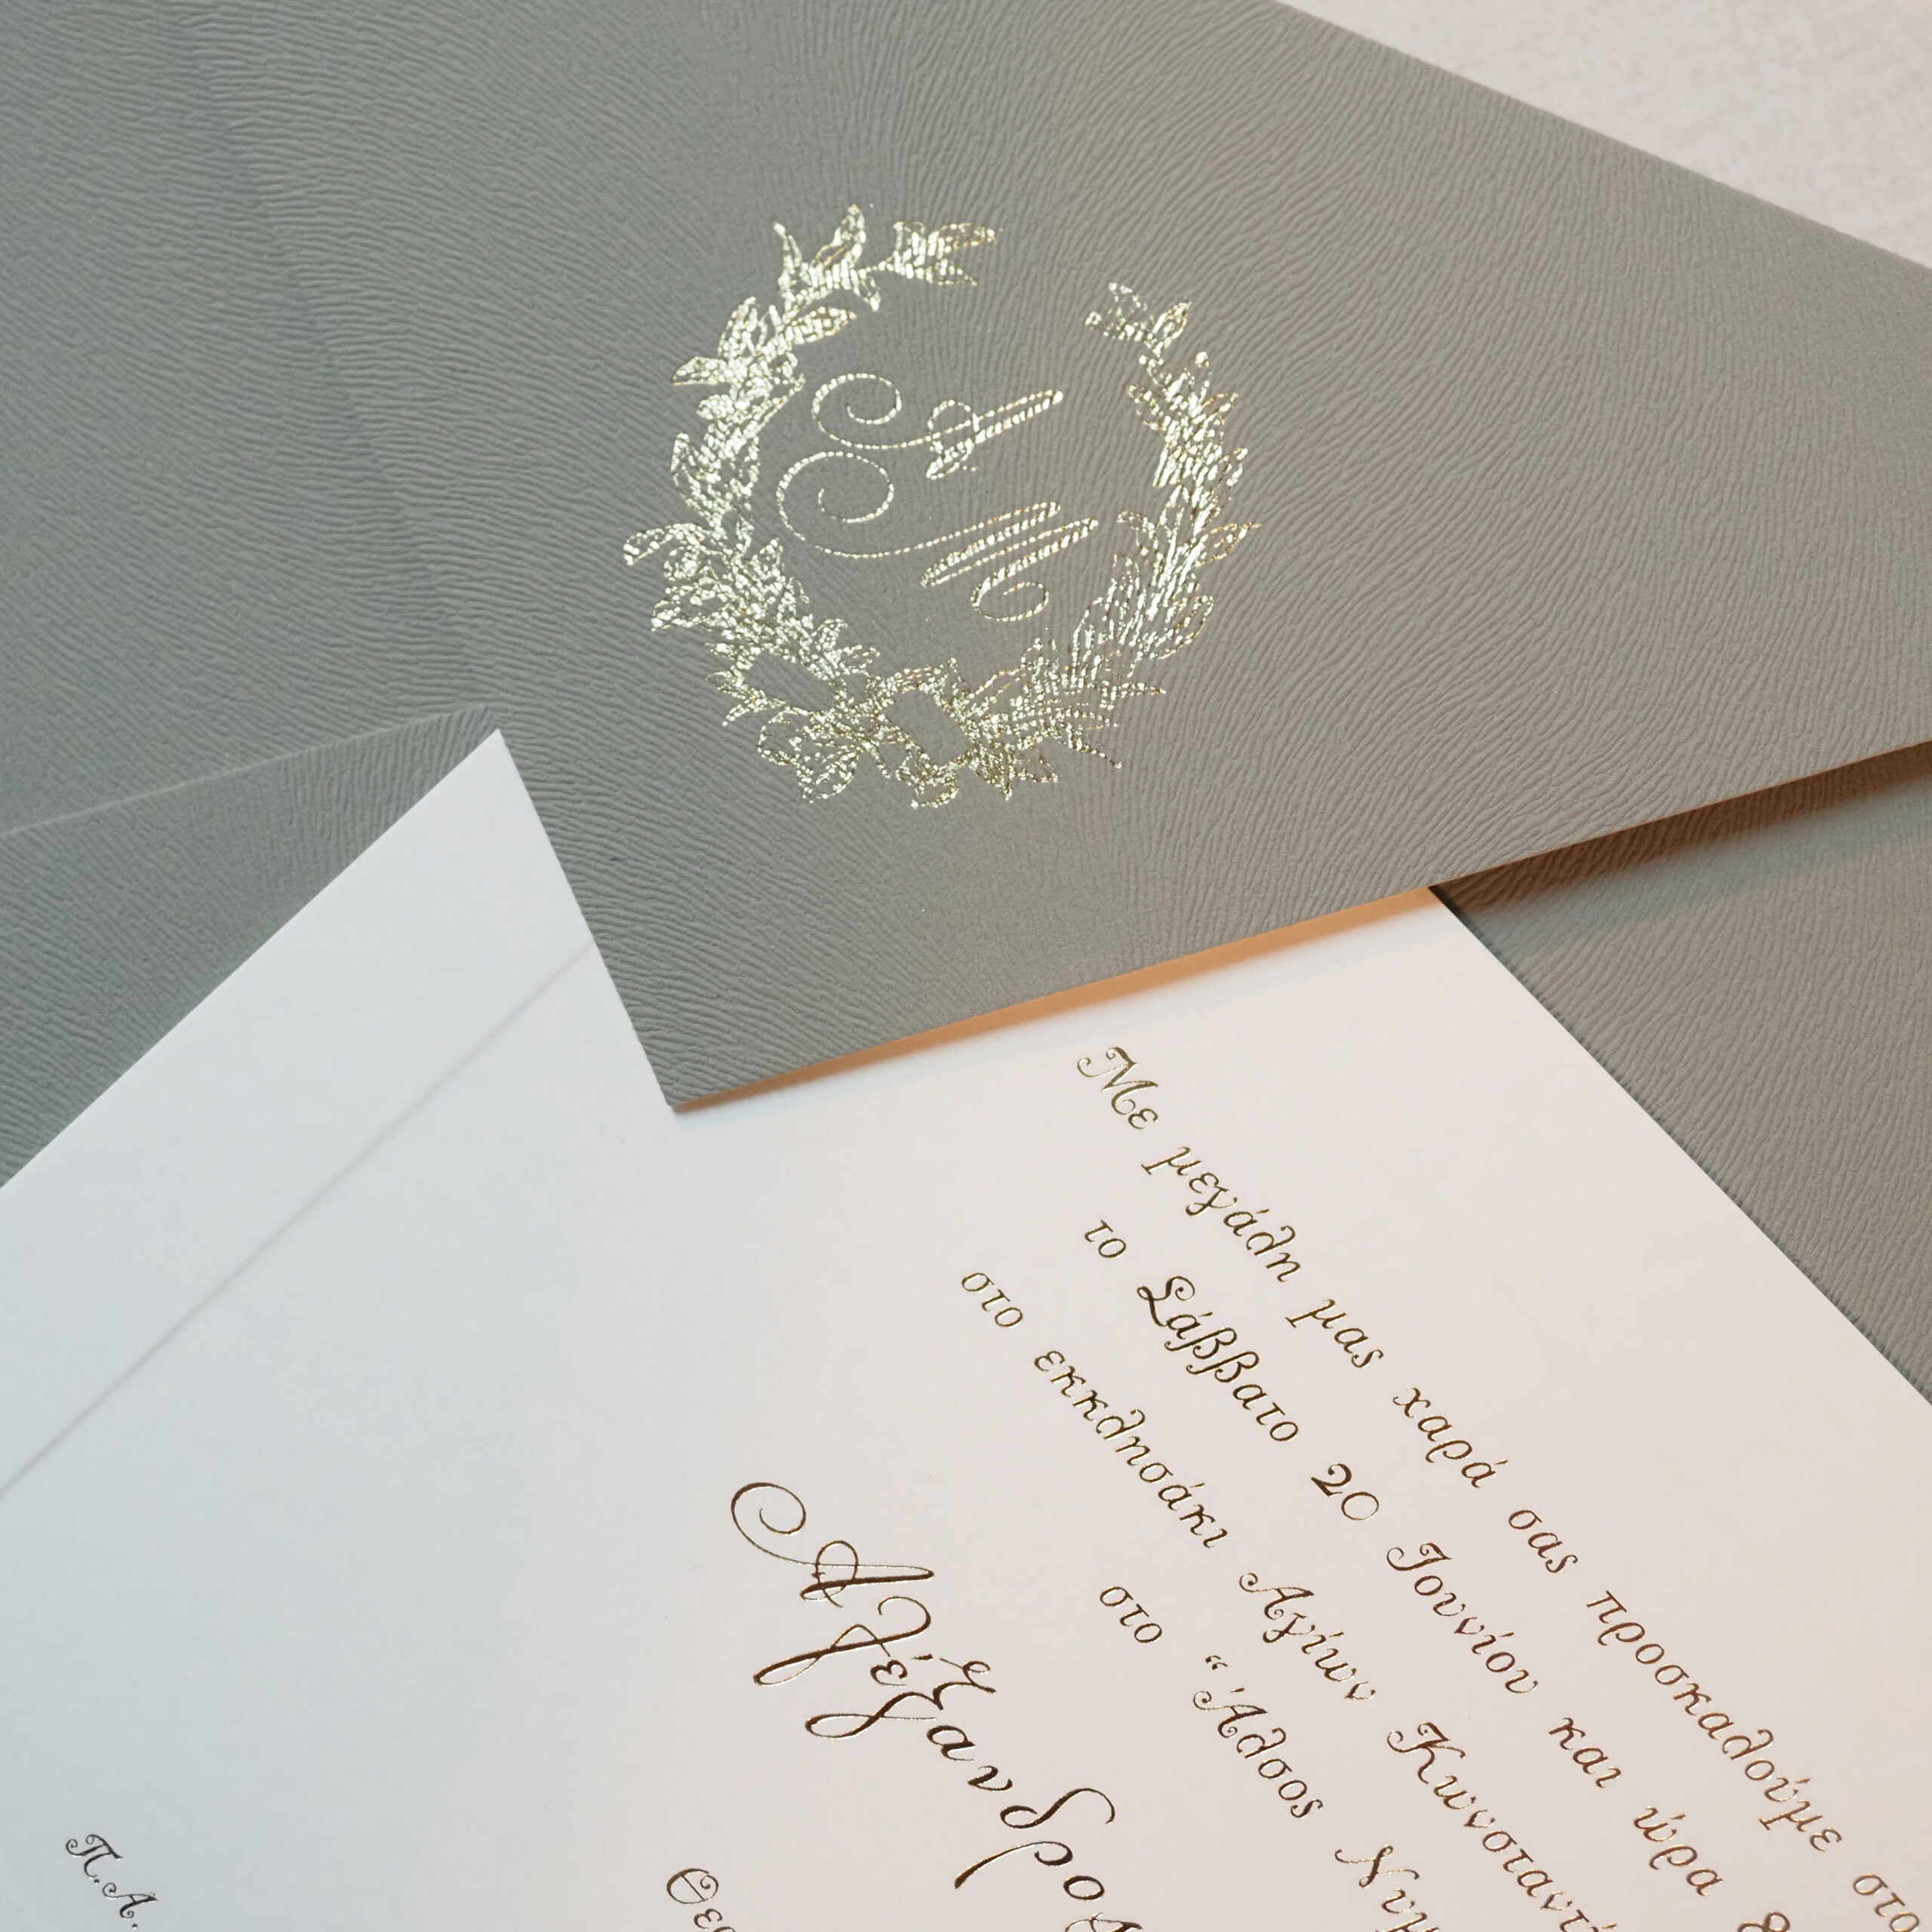 A
M
Με μεγάλη μας χαρά σας προσκαλούμε στο
το Σάββατο 20 Ιουνίου και ώρα
στο εκκλησάκι Αγίων Κωνσταντί
στο “Άλσος Νυμ
Αλέξανδρο
Θεσ
Π.Α.